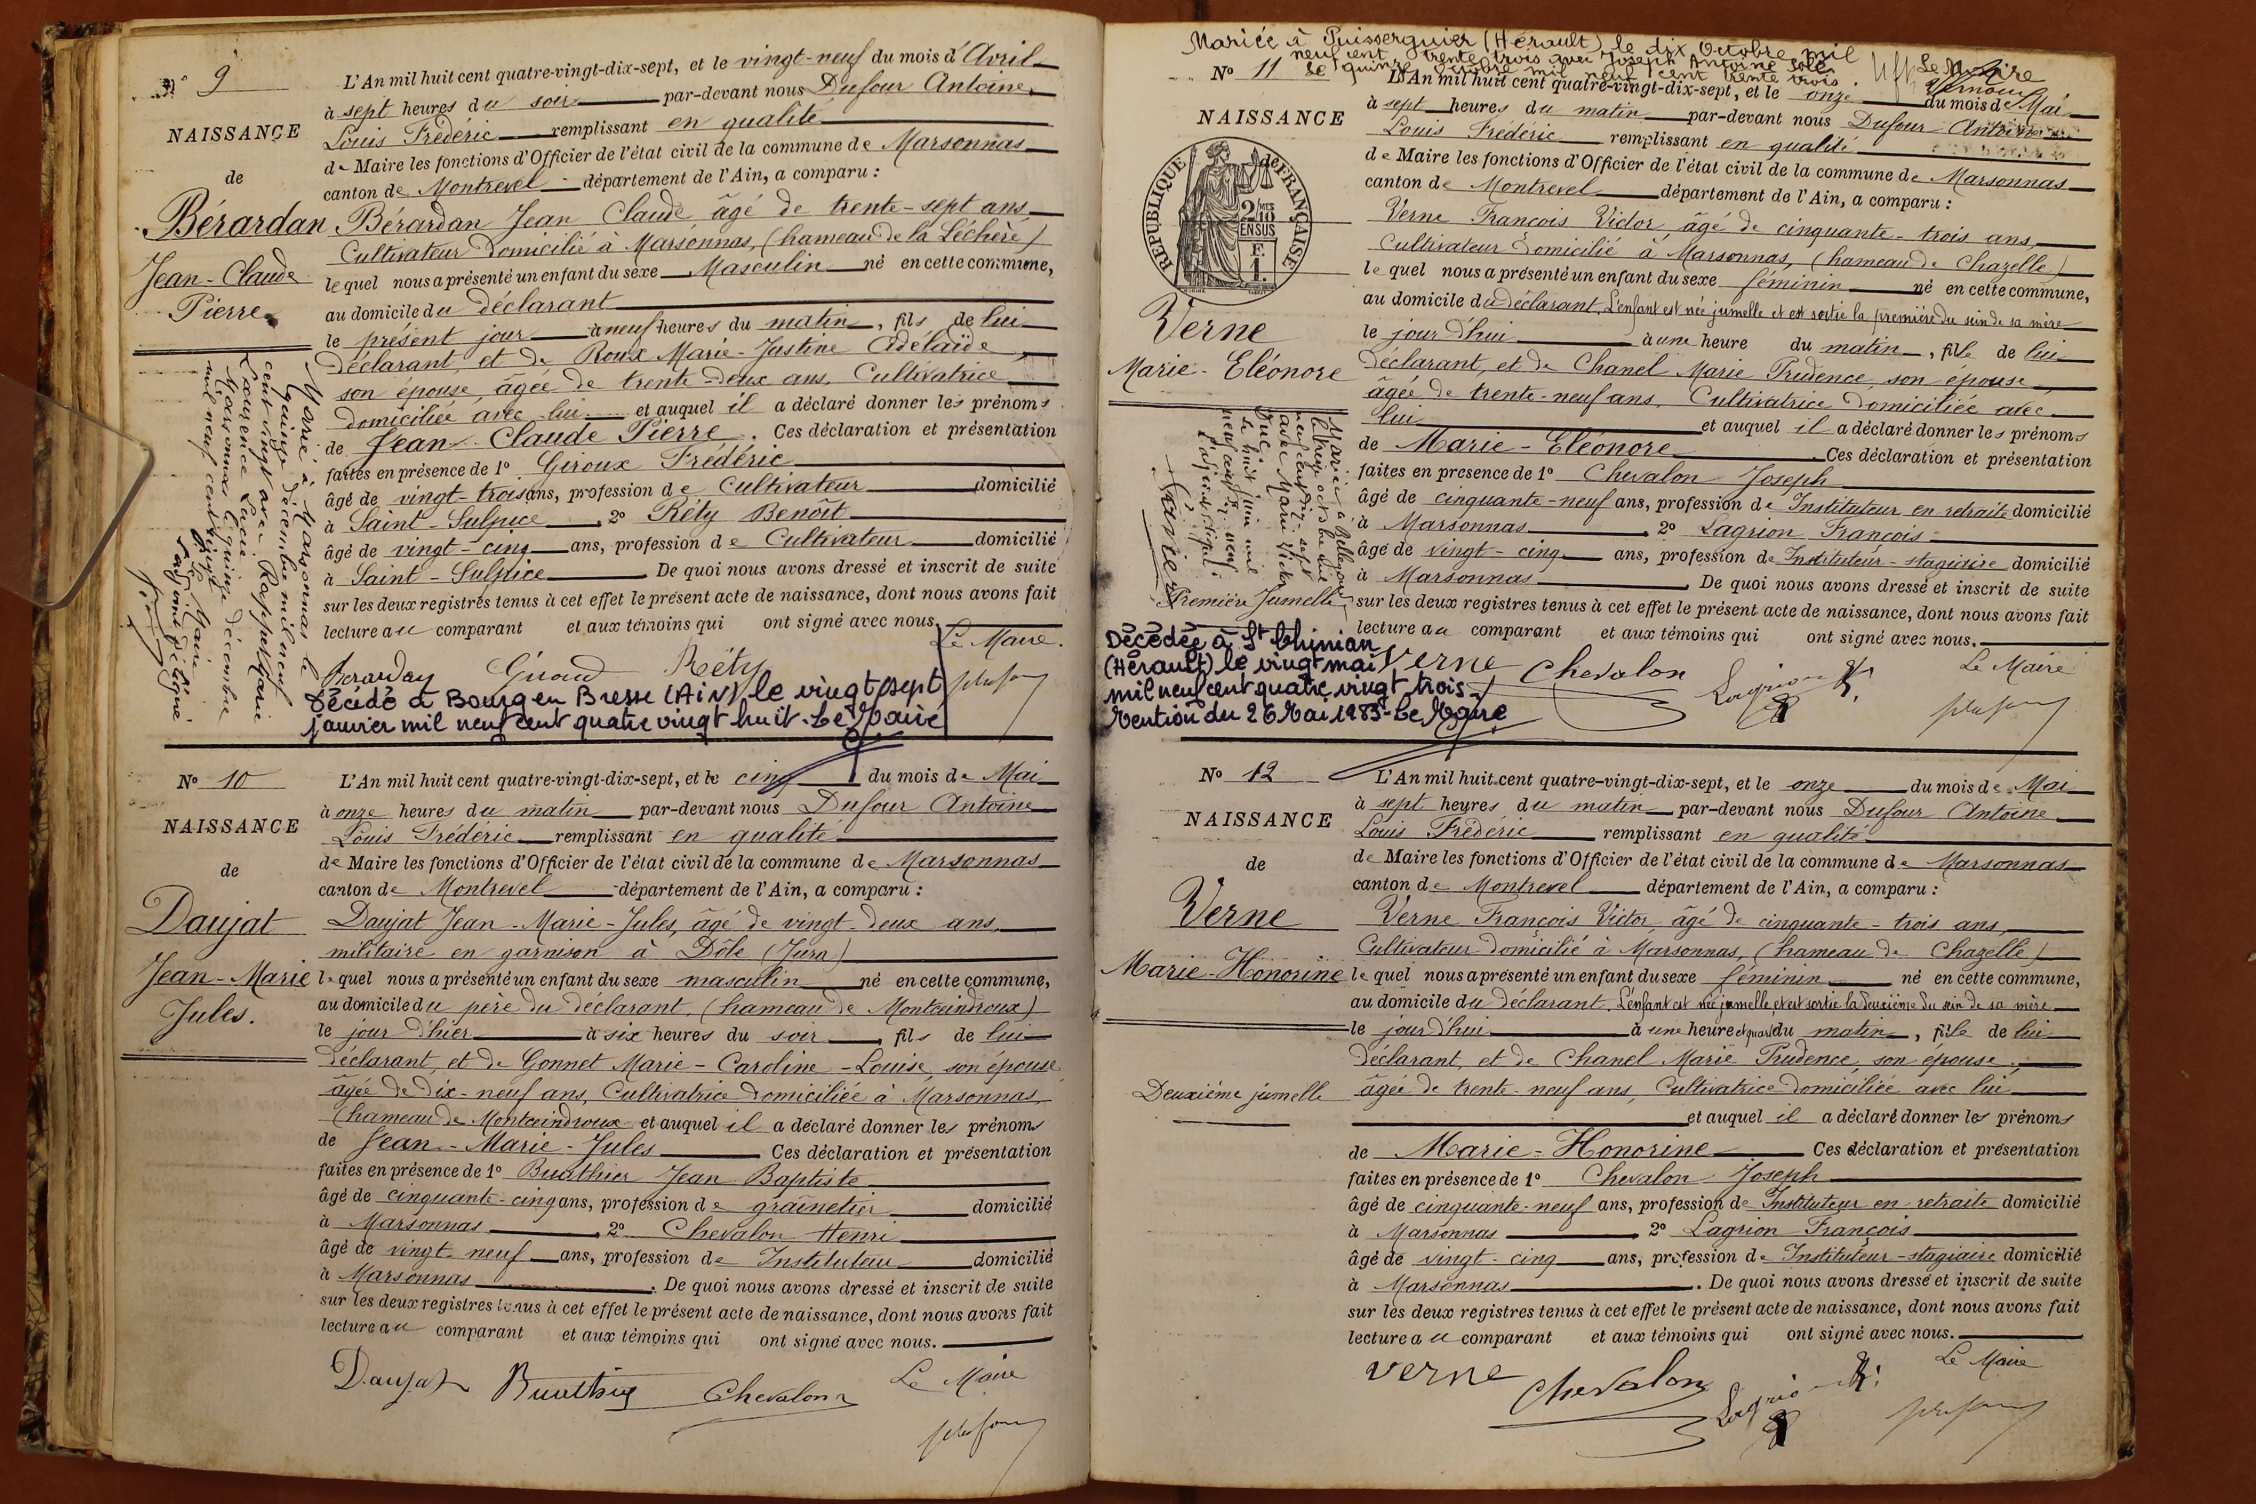 N° 9
NAISSANCE
de
Bérardan
Jean-Claude
Pierre
L'An mil huit cent quatre-vingt-dix-sept, et le vingt-neuf du mois d'Avril
à sept heures du soir par-devant nous Dufour Antoine
Louis Frédéric remplissant en qualité
de Maire les fonctions d'Officier de l'état civil de la commune de Marsonnas
canton de Montrevel département de l'Ain, a comparu :
Bérardan Jean Claude âgé de trente-sept ans
Cultivateur domicilié à Marsonnas, (hameau de la Léchère)
lequel nous a présenté un enfant du sexe Masculin né en cette commune,
au domicile du déclarant
le présent jour à neuf heures du matin, fils de lui
déclarant, et de Roux Marie-Justine Adélaïde
son épouse, âgée de trente-deux ans, Cultivatrice
domiciliée avec lui et auquel il a déclaré donner les prénoms
de Jean-Claude Pierre. Ces déclaration et présentation
faites en présence de 1° Giroux Frédéric
âgé de vingt-trois ans, profession de Cultivateur domicilié
à Saint-Sulpice, 2° Réty Benoît
âgé de vingt-cinq ans, profession de Cultivateur domicilié
à Saint-Sulpice De quoi nous avons dressé et inscrit de suite
sur les deux registres tenus à cet effet le présent acte de naissance, dont nous avons fait
lecture au comparant et aux témoins qui ont signé avec nous.
Le Maire.
Réty
Marié à Marsonnas le
quinze décembre mil neuf
cent vingt avec
Laurence Lucie
Marsonnas le quinze décembre
mil neuf cent vingt
Le Maire
Décédé à Bourg en Bresse (Ain) le vingt sept
janvier mil neuf cent quatre vingt huit. Le Maire
N° 10
NAISSANCE
de
Daujat
Jean-Marie
Jules.
L'An mil huit cent quatre-vingt-dix-sept, et le cinq du mois de Mai
à onze heures du matin par-devant nous Dufour Antoine
Louis Frédéric remplissant en qualité
de Maire les fonctions d'Officier de l'état civil de la commune de Marsonnas
canton de Montrevel département de l'Ain, a comparu :
Daujat Jean-Marie-Jules, âgé de vingt-deux ans
militaire en garnison à Dôle (Jura)
lequel nous a présenté un enfant du sexe masculin né en cette commune,
au domicile du père du déclarant, (hameau de Montceindroux)
le jour d'hier à six heures du soir, fils de lui
déclarant, et de Gonnet Marie-Caroline-Louise, son épouse
âgée de dix-neuf ans, Cultivatrice domiciliée à Marsonnas
(hameau de Montceindroux et auquel il a déclaré donner les prénoms
de Jean-Marie-Jules Ces déclaration et présentation
faites en présence de 1° Buathier Jean Baptiste
âgé de cinquante-cinq ans, profession de grainetier domicilié
à Marsonnas, 2° Chevalon Henri
âgé de vingt-neuf ans, profession de Instituteur domicilié
à Marsonnas. De quoi nous avons dressé et inscrit de suite
sur les deux registres tenus à cet effet le présent acte de naissance, dont nous avons fait
lecture au comparant et aux témoins qui ont signé avec nous.
Daujat Buathier Chevalon Le Maire
Mariée à Puisserguier (Hérault) le dix Octobre mil
neuf cent trente trois avec Joseph Antoine Solé
le quinze Octobre mil neuf cent trente trois.
Le Maire
N° 11
NAISSANCE
RÉPUBLIQUE FRANÇAISE
2/10mes
EN SUS
F.
1.
Verne
Marie-Eléonore
L'An mil huit cent quatre-vingt-dix-sept, et le onze du mois de Mai
à sept heures du matin par-devant nous Dufour Antoine
Louis Frédéric remplissant en qualité
de Maire les fonctions d'Officier de l'état civil de la commune de Marsonnas
canton de Montrevel département de l'Ain, a comparu :
Verne François Victor âgé de cinquante-trois ans
Cultivateur domicilié à Marsonnas, (hameau de Chazelle)
lequel nous a présenté un enfant du sexe féminin né en cette commune,
au domicile du déclarant. L'enfant est née jumelle et est sortie la première du sein de sa mère
le jour d'hui à une heure du matin, fille de lui
déclarant, et de Chanel Marie Prudence, son épouse
âgée de trente-neuf ans, Cultivatrice domiciliée avec
lui et auquel il a déclaré donner les prénoms
de Marie-Eléonore Ces déclaration et présentation
faites en présence de 1° Chevalon Joseph
âgé de cinquante-neuf ans, profession de Instituteur en retraite domicilié
à Marsonnas 2° Lagrion François
âgé de vingt-cinq ans, profession de Instituteur-stagiaire domicilié
à Marsonnas. De quoi nous avons dressé et inscrit de suite
sur les deux registres tenus à cet effet le présent acte de naissance, dont nous avons fait
lecture au comparant et aux témoins qui ont signé avec nous.
Première Jumelle
Décédée à St Chinian
(Hérault) le vingt mai
mil neuf cent quatre vingt trois
Mention du 26 Mai 1983 - Le Maire
Verne Chevalon Lagrion Le Maire
N° 12
NAISSANCE
de
Verne
Marie-Honorine
Deuxième jumelle
L'An mil huit cent quatre-vingt-dix-sept, et le onze du mois de Mai
à sept heures du matin par-devant nous Dufour Antoine
Louis Frédéric remplissant en qualité
de Maire les fonctions d'Officier de l'état civil de la commune de Marsonnas
canton de Montrevel département de l'Ain, a comparu :
Verne François Victor âgé de cinquante-trois ans,
Cultivateur domicilié à Marsonnas, (hameau de Chazelle)
lequel nous a présenté un enfant du sexe féminin né en cette commune,
au domicile du déclarant. L'enfant est née jumelle, et est sortie la deuxième du sein de sa mère
le jour d'hui à une heure et quart du matin, fille de lui
déclarant, et de Chanel Marie Prudence, son épouse,
âgée de trente-neuf ans, Cultivatrice domiciliée avec lui
et auquel il a déclaré donner les prénoms
de Marie-Honorine Ces déclaration et présentation
faites en présence de 1° Chevalon Joseph
âgé de cinquante-neuf ans, profession de Instituteur en retraite domicilié
à Marsonnas, 2° Lagrion François
âgé de vingt-cinq ans, profession de Instituteur-stagiaire domicilié
à Marsonnas. De quoi nous avons dressé et inscrit de suite
sur les deux registres tenus à cet effet le présent acte de naissance, dont nous avons fait
lecture au comparant et aux témoins qui ont signé avec nous.
Verne Chevalon Lagrion Le Maire